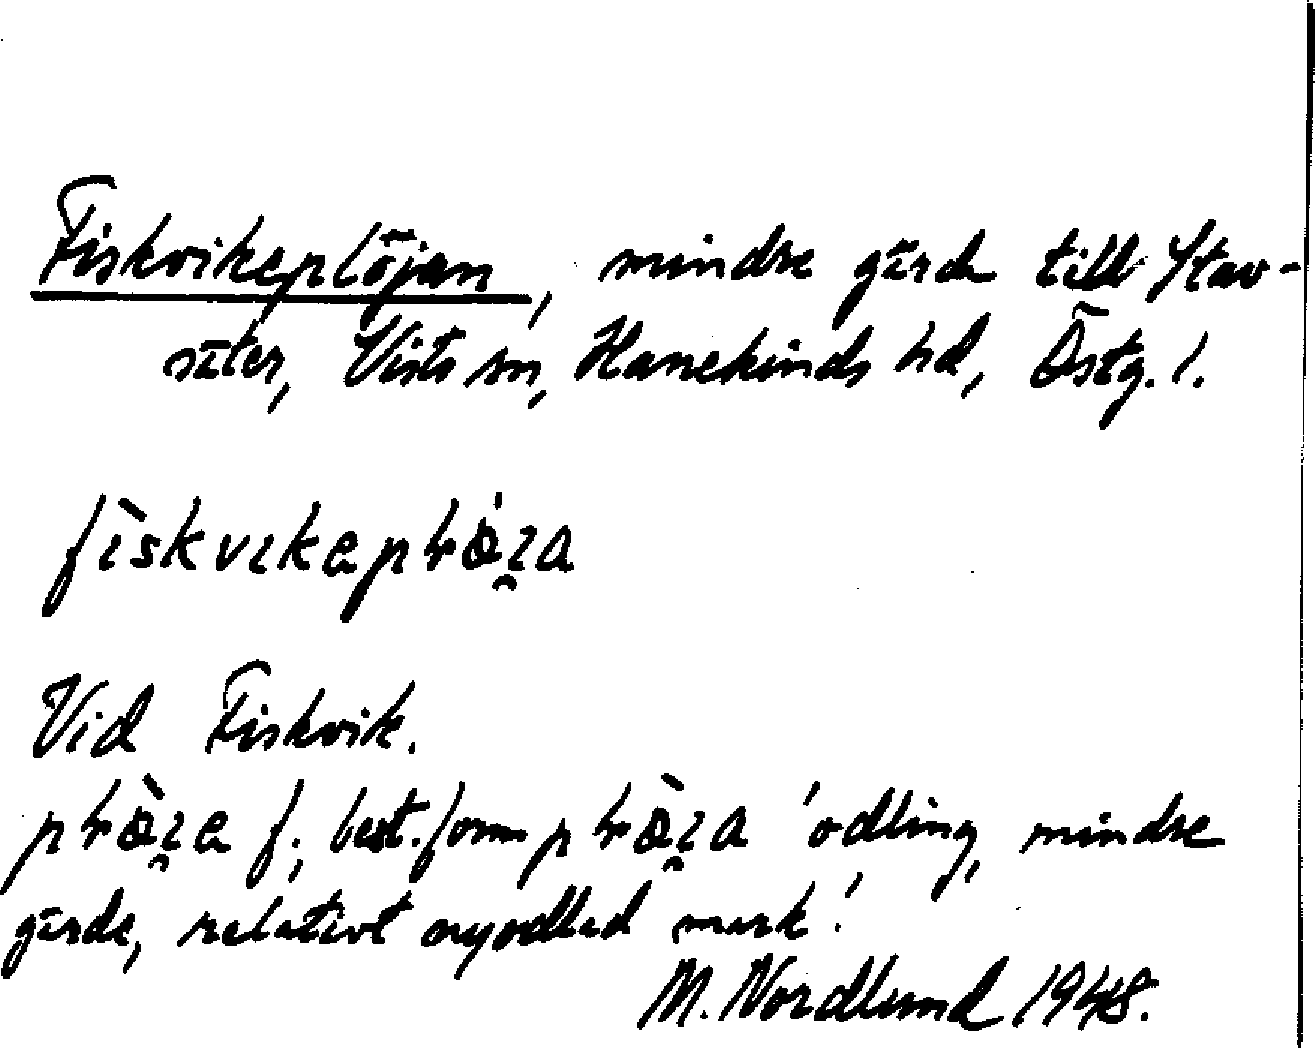 Fiskvikeplöjan, mindre gärde till Stav-
säter, Vists sn, Hanekinds hd, Östg. l.
Vid Fiskvik.
f.; best. form 'odling, mindre
gärde, relativt nyodlad mark'.
M. Nordlund 1948.